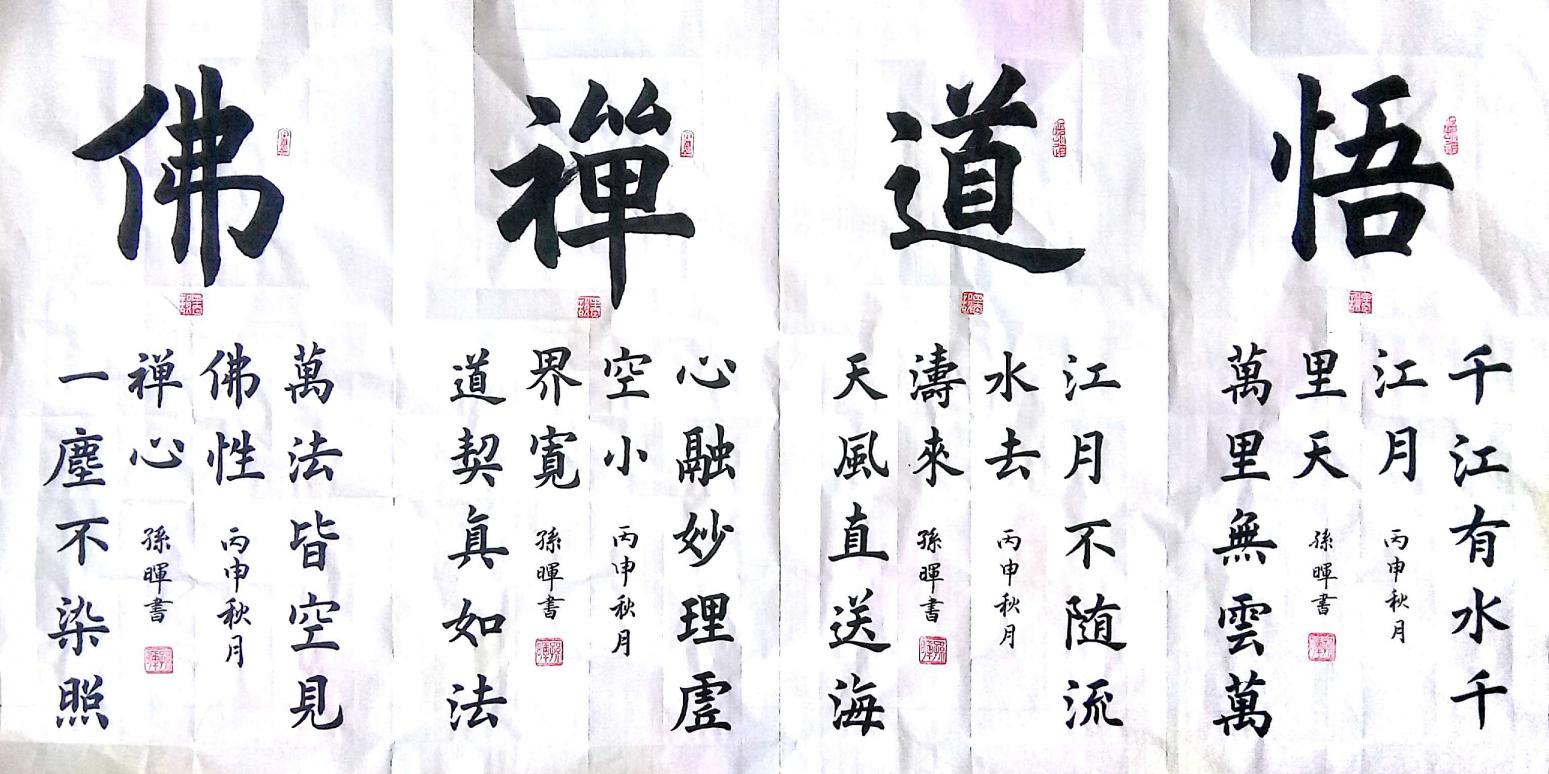 悟
千江有水千
江月
萬里無雲萬
里天
丙申秋月
孫暉書
道
江月不随流
水去
天風直送海
濤來
丙申秋月
孫暉書
禪
心融妙理虛
空小
道契真如法
界寬
丙申秋月
孫暉書
佛
萬法皆空見
佛性
一塵不染照
禅心
丙申秋月
孫暉書